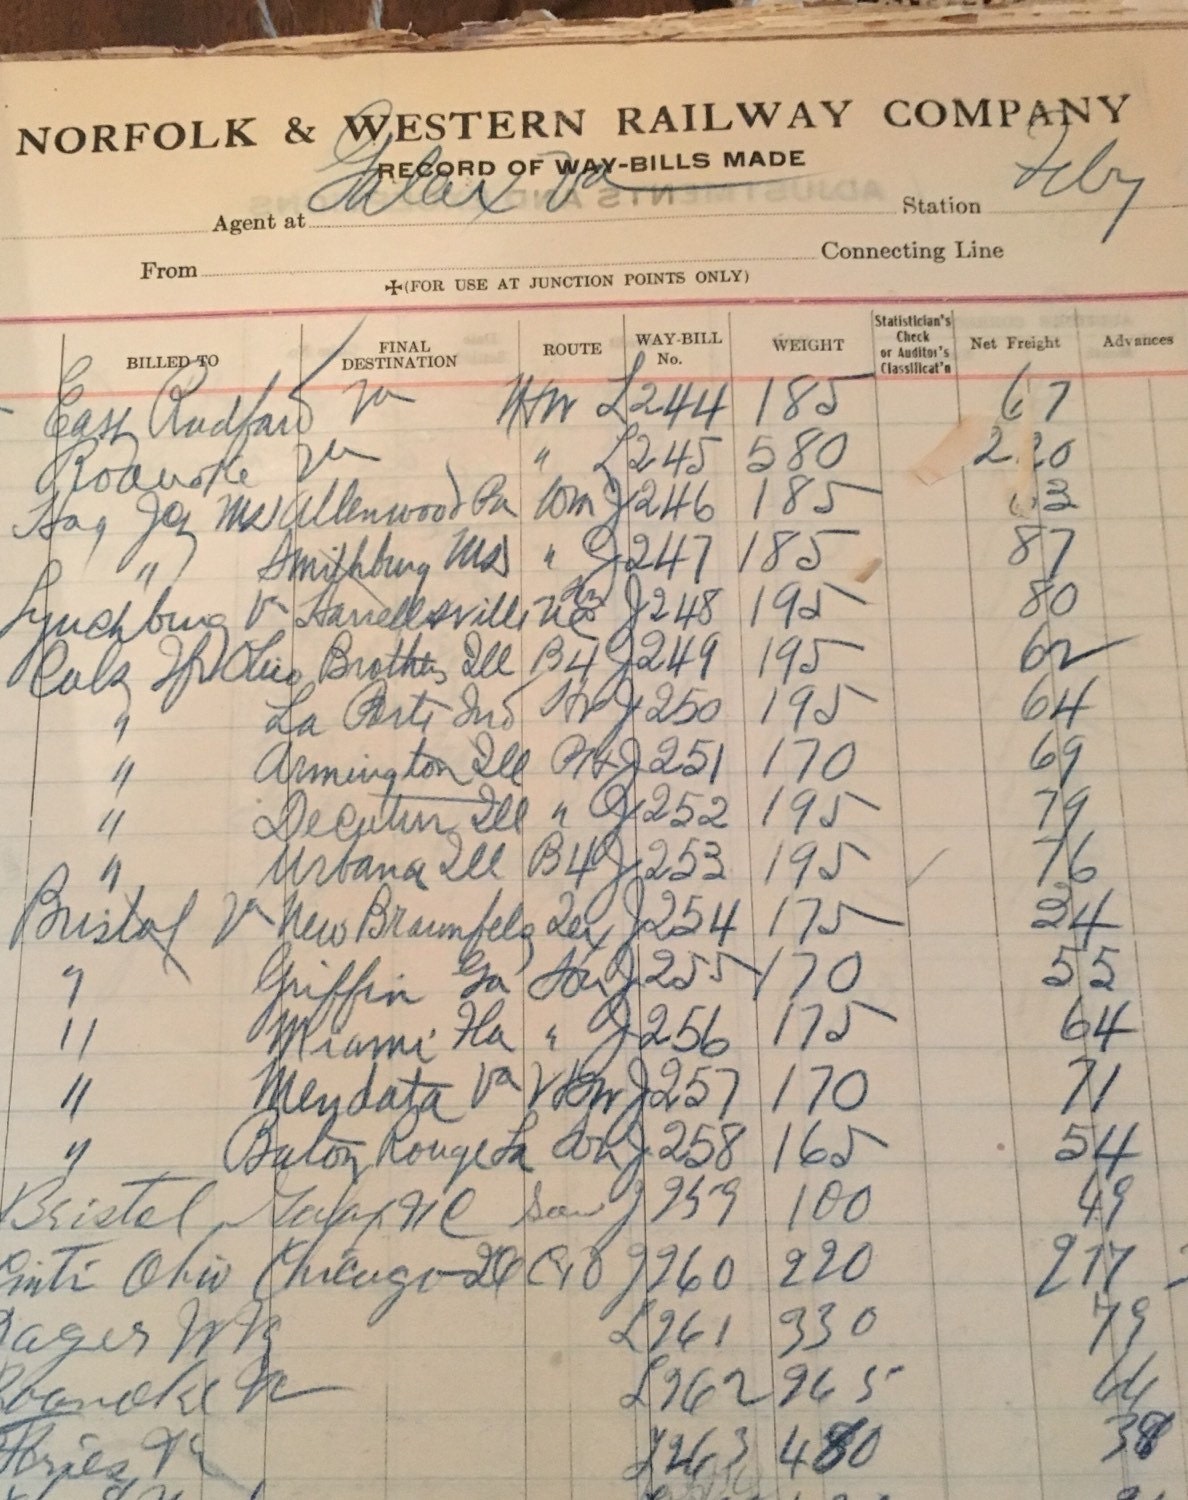 NORFOLK & WESTERN RAILWAY COMPANY
RECORD OF WAY-BILLS MADE
Agent at Galax Va Station Feby
From Connecting Line
✠(FOR USE AT JUNCTION POINTS ONLY)
BILLED TO FINAL DESTINATION ROUTE WAY-BILL No. WEIGHT Statistician's Check or Auditor's Classificat'n Net Freight Advances
East Radford Va L244 185 67
Roanoke Va " L245 580 220
Hag Allenwood Pa J246 185 63
" Smithburg Md " J247 185 87
Lynchburg Va Harrellsville NC J248 195 80
Cols Ohio Brothers Ill B4 J249 195 62
" La Porte Ind J250 195 64
" Armington Ill J251 170 69
" Decatur Ill " J252 195 79
" Urbana Ill B4 J253 195 76
Bristol Va New Braunfels Tex J254 175 24
" Griffin Ga Sou J255 170 55
" Miami Fla " J256 175 64
" Mendata Va J257 170 71
" Baton Rouge La Sou J258 165 54
Bristol NC Sou J259 100 49
Cinti Ohio Chicago Ill J260 220 277
L261 330 79
Roanoke Va L262 265 66
Fries Va L263 480 38